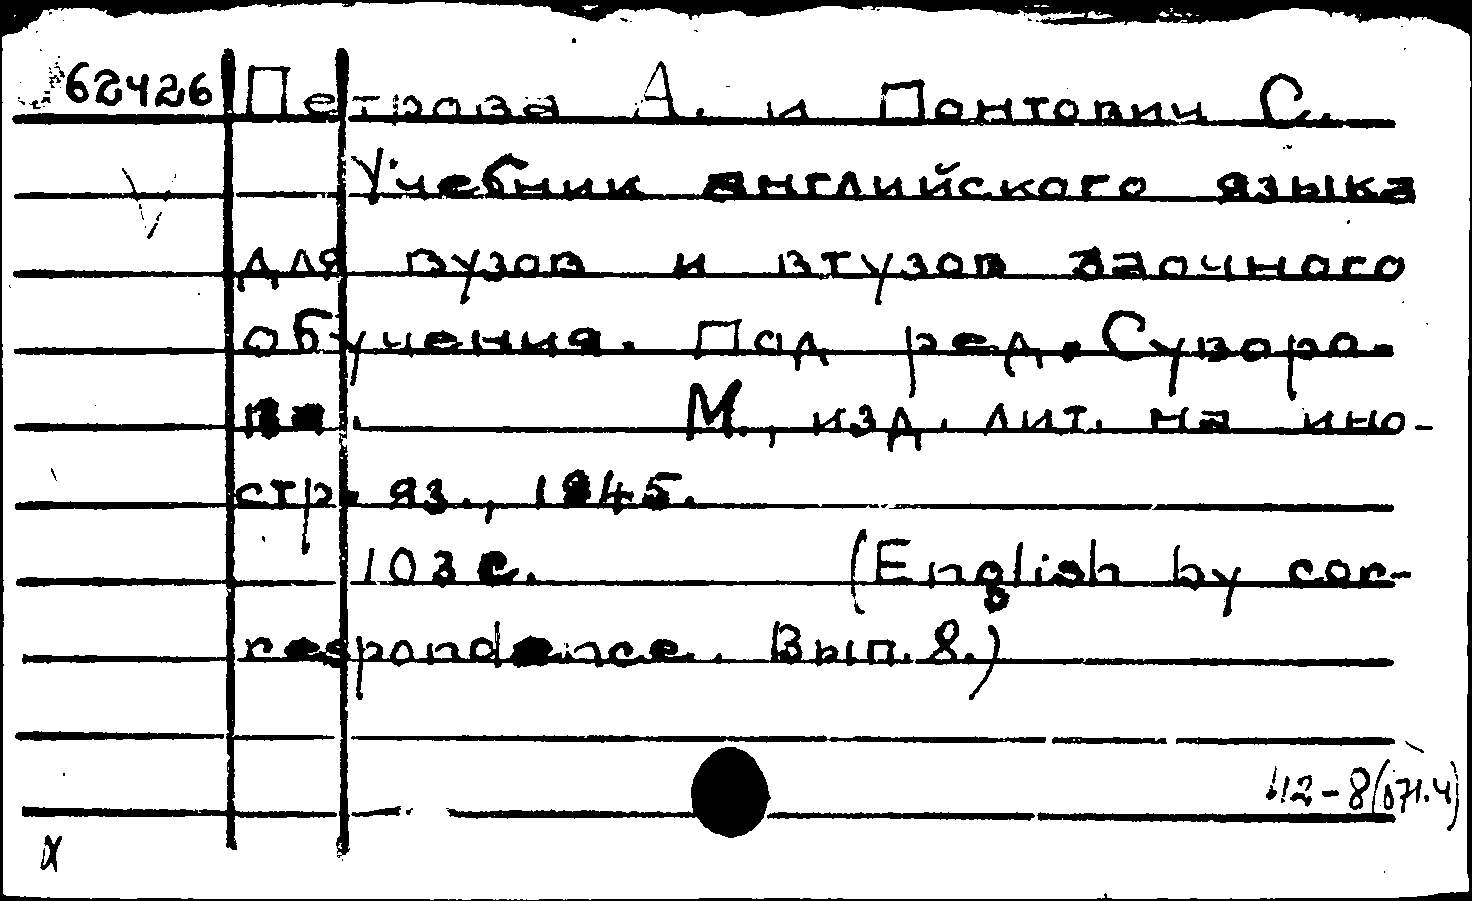 62426 Петрова А. и Понтович С.
Учебник английского языка
для вузов и втузов заочного
обучения. Под ред. Суворо-
ва. М., изд. лит. на ино-
стр. яз., 1945.
103 с. (English by cor-
respondence. Вып. 8.)
42-8(071.4)